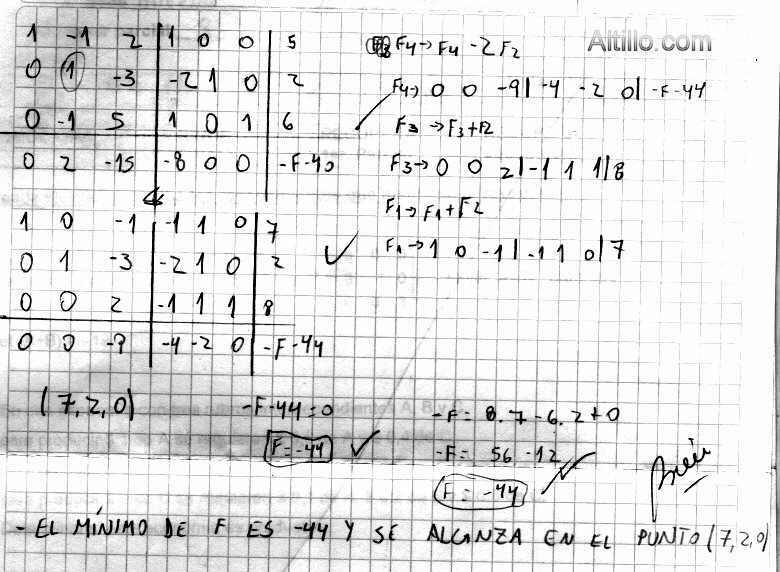 Altillo.com
1 -1 2 | 1 0 0 | 5
0 1 -3 | -2 1 0 | 2
0 -1 5 | 1 0 1 | 6
0 2 -15 | -8 0 0 | -F-40
F4→ F4 -2F2
F4→ 0 0 -9 | -4 -2 0 | -F-44
F3 → F3+F2
F3→ 0 0 2 | -1 1 1 | 8
F1→ F1+F2
F1→ 1 0 -1 | -1 1 0 | 7
1 0 -1 | -1 1 0 | 7
0 1 -3 | -2 1 0 | 2
0 0 2 | -1 1 1 | 8
0 0 -9 | -4 -2 0 | -F-44
(7,2,0)
-F-44=0
F=-44 ✓
-F= 8.7-6.2+0
-F= 56-12
F= -44 ✓
- EL MÍNIMO DE F ES -44 Y SE ALCANZA EN EL PUNTO (7,2,0)